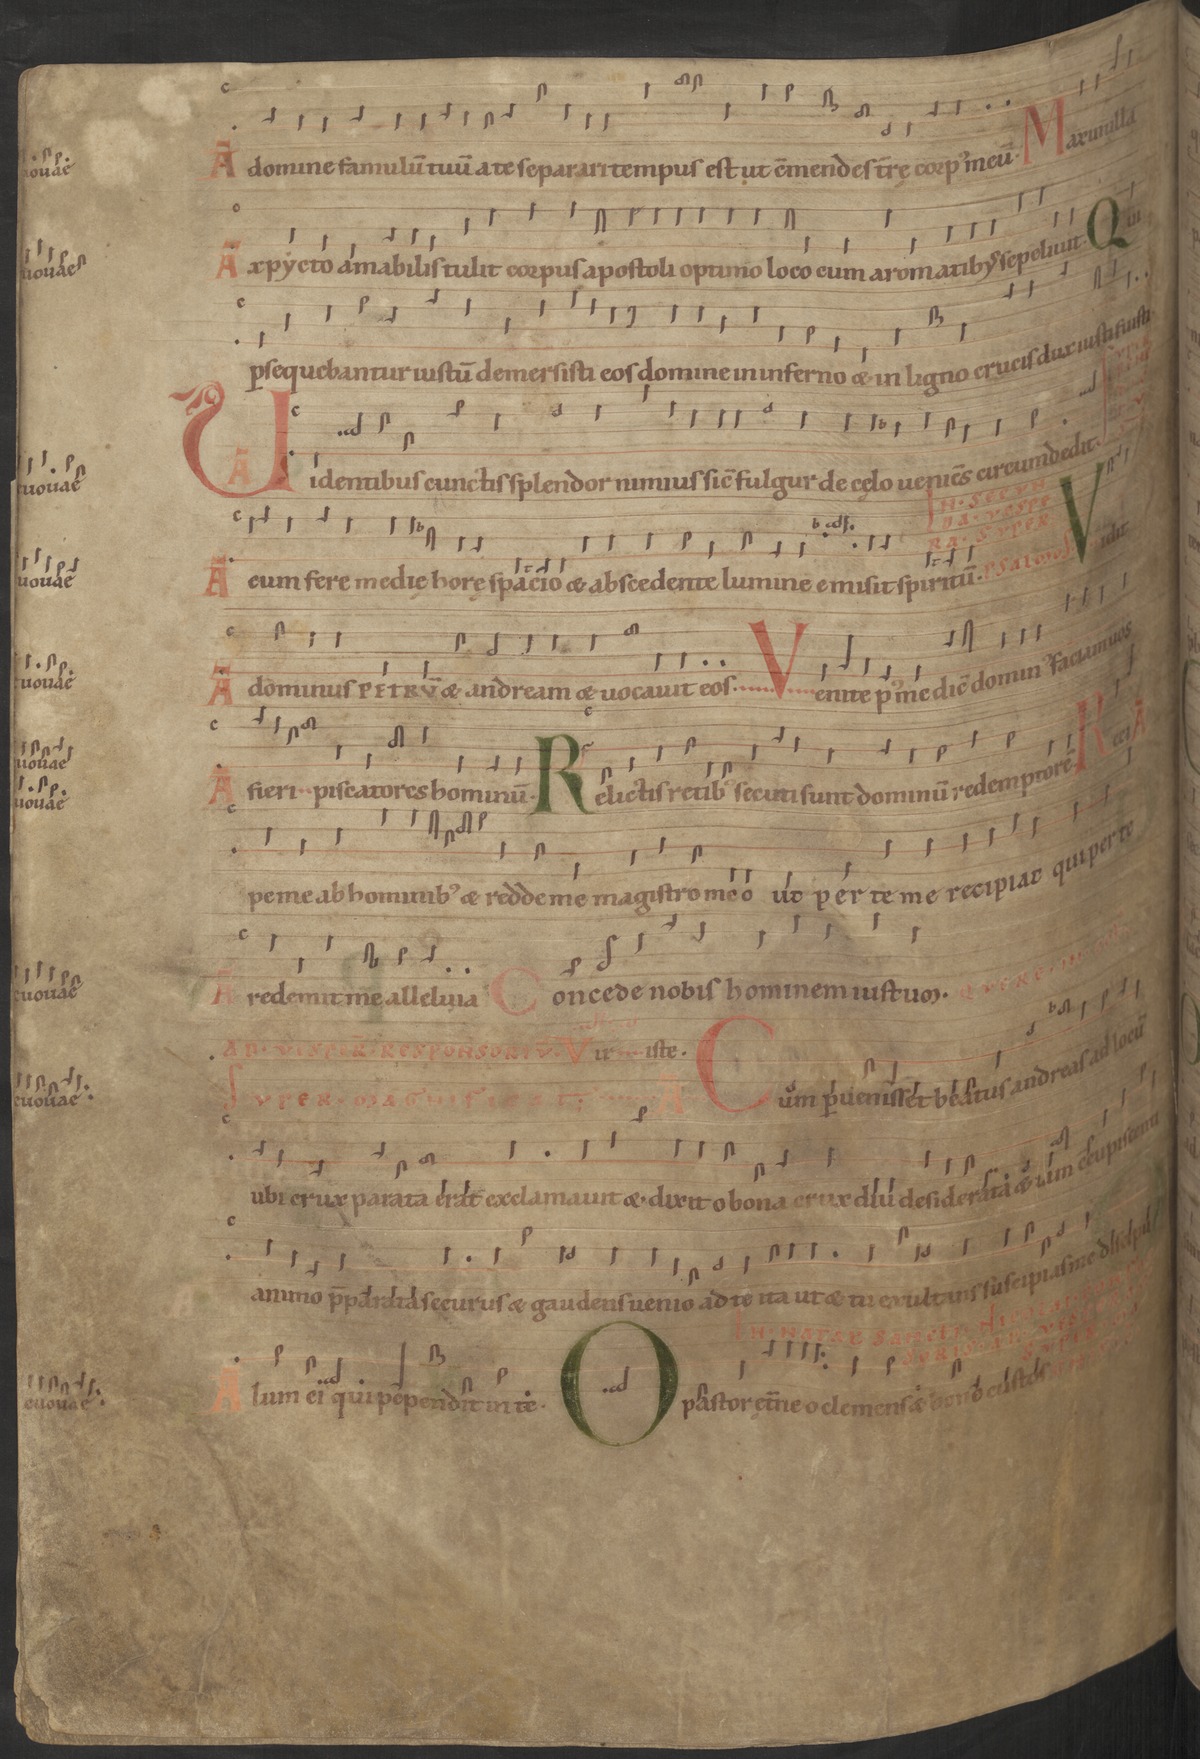 euouae Ā domine famulū tuū a te separari tempus est ut c̄mendes t̄rę corpꝰ meū. Maximilla
euouae Ā xpȳcto amabilis tulit corpus apostoli optimo loco cum aromatibꝰ sepeliuit. Qui
ꝑsequebantur iustū demersisti eos domine in inferno & in ligno crucis dux iusti fuisti.
euouae Ā Videntibus cunctis splendor nimius sic̄ fulgur de cęlo ueniēs circumdedit.
IN SECVN
DA VESPE
RA. SVPER
euouae Ā eum fere medię horę spacio & abscedente lumine emisit spiritū. PSALMOS Vidit
euouae Ā dominus PETRV̄ & andream & uocauit eos. Venite pꝰ me dic̄ dominꝰ faciam uos
euouae Ā fieri piscatores hominū. Relictis retibꝰ secuti sunt dominū redemptorē. Ā Reci
euouae
pe me ab hominibꝰ & redde me magistro meo ut per te me recipiat qui per te
euouae Ā redemit me alleluia Concede nobis hominem iustum. QVERE IN
AD VESPER̄ RESPONSORIV̄. Vir iste.
euouae SVPER MAGNIFICAT A Cum ꝑuenisset beatus andreas ad locū
ubi crux parata erat exclamauit & dixit o bona crux diu desiderata & iam c̄cupiscenti
animo p̄parata securus & gaudens uenio ad te ita ut & tu exultans suscipias me discipu
IN NATAL SANCTI NICOLAI
euouae Ā lum ei qui pependit in te. O pastor et̄ne o clemens & bone custos